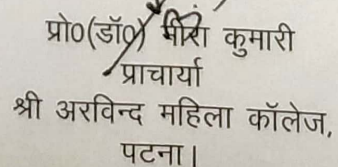 प्रो0(डॉ0) मीरा कुमारी
प्राचार्या
श्री अरविन्द महिला कॉलेज,
पटना।